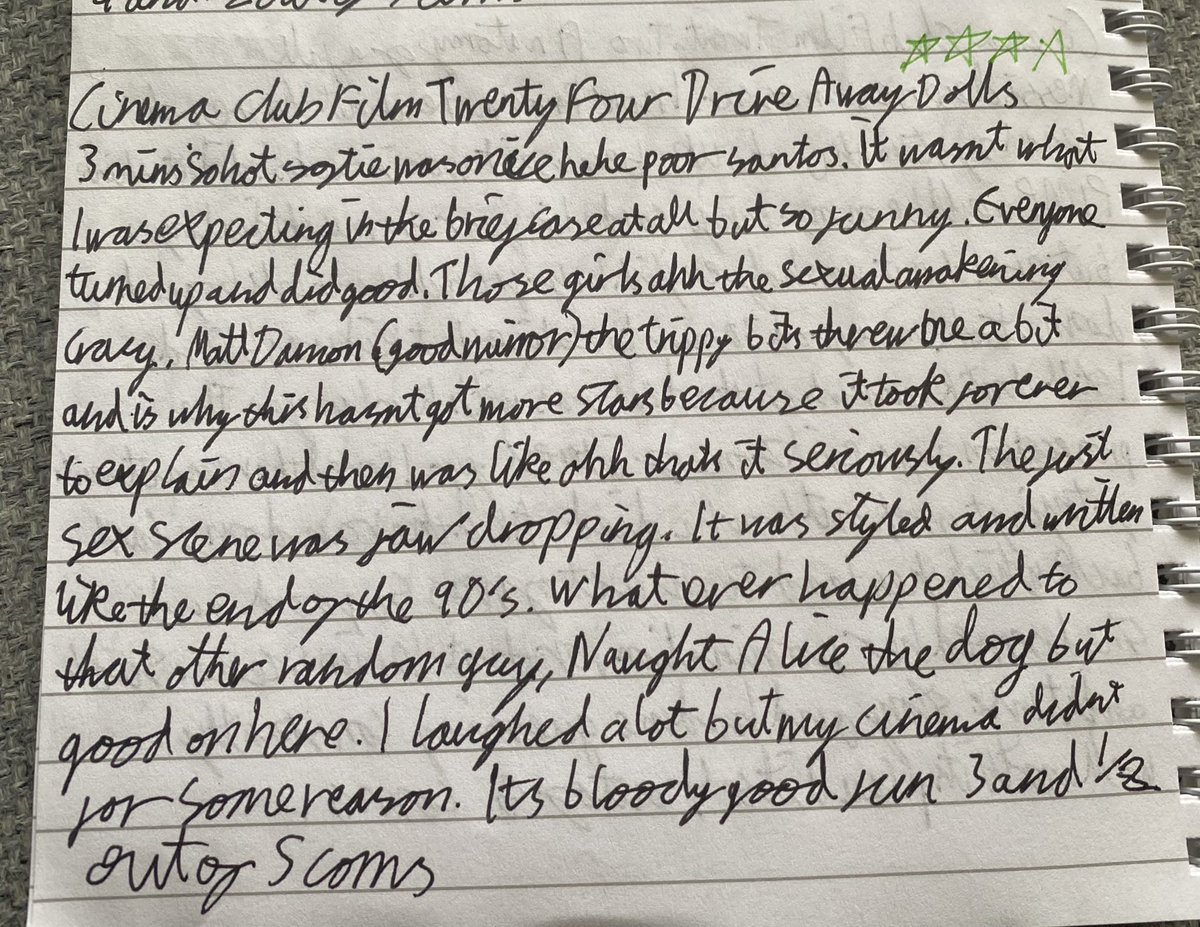 Cinema Club Film Twenty Four Drive Away Dolls
3 mins so hot sostie was on ice hehe poor santos. It wasnt what
I was expecting in the briefcase at all but so funny. Everyone
turned up and did good. Those girls ahh the sexual awakening
crazy, Matt Damon (good mirror) the trippy bits threw me a bit
and is why this hasnt got more stars because it took forever
to explain and then was like ohh thats it seriously. The first
sex scene was jaw dropping. It was styled and written
like the end of the 90's. What ever happened to
that other random guy, Naught Alice the dog but
good on here. I laughed a lot but my cinema didnt
for some reason. Its bloody good fun 3 and 1/2
out of 5 coms